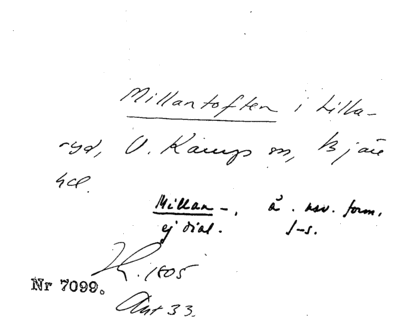 Millantoften i Lilla-
ryd, V. Karups sn, Bjäre
hd.
Millan-, ä. nsv. form,
ej dial.
1805
Nr 7099.
Akt 33.